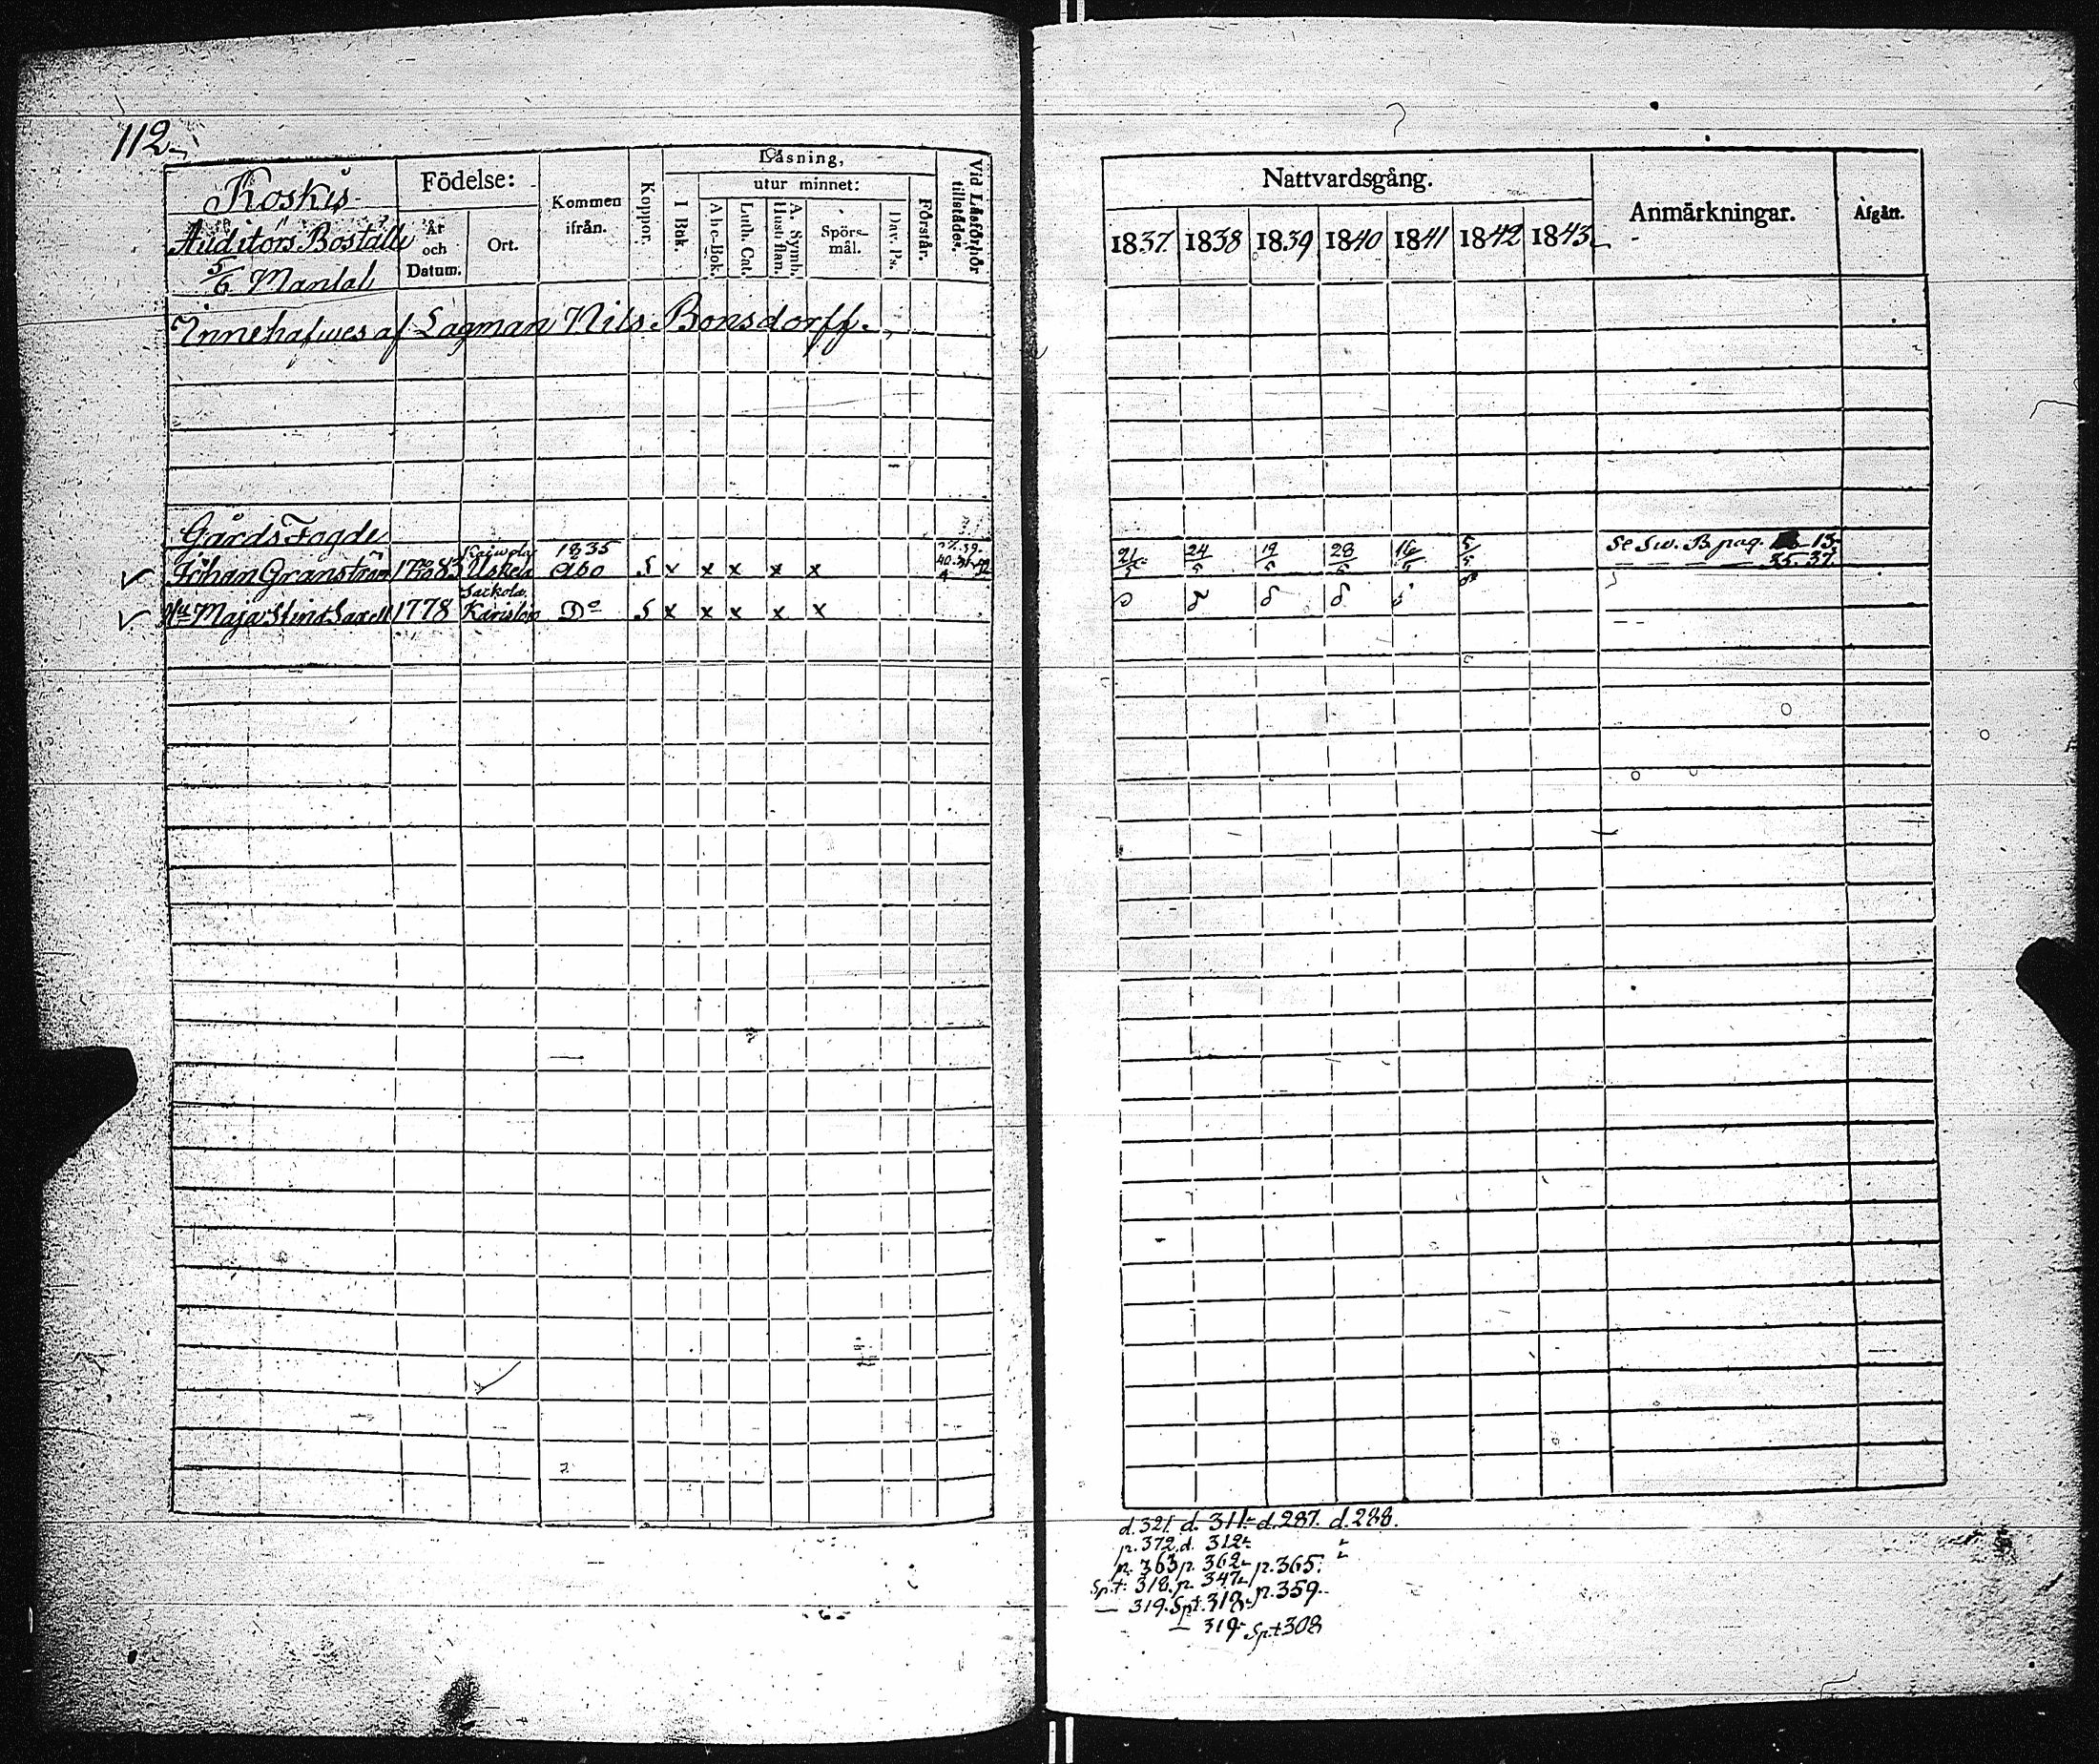 112
Koskis
Auditörs Boställe
5/6 Mantal
Födelse:
År och Datum.
Ort.
Kommen ifrån.
Koppor.
Läsning,
I Bok.
utur minnet:
Abc-Bok.
Luth. Cat.
A. Symb. Hust: flan.
Spörsmål.
Dav. Ps.
Förstår.
Vid Läsförhör tillstädes.
Innehafwes af Lagman Nils Bonsdorff.
Gårds Fogde
Johan Granström 1783 Uskela 1835 Åbo S x x x x x
Hu Maja Stina Saxell 1778 Karislojo Do S x x x x x
Nattvardsgång.
1837. 1838 1839 1840 1841 1842 1843
Anmärkningar.
Afgått.
21/5 24/5 19/5 28/5 16/5 5/5 Se Sw. B pag. 13
35. 37.
d. 321. d. 311. d. 287. d. 288.
p. 372. d. 312.
p. 363 p. 362 p. 365.
Spt. 318. p. 347 p. 359.
— 319. Spt. 318.
— 319 Spt 308